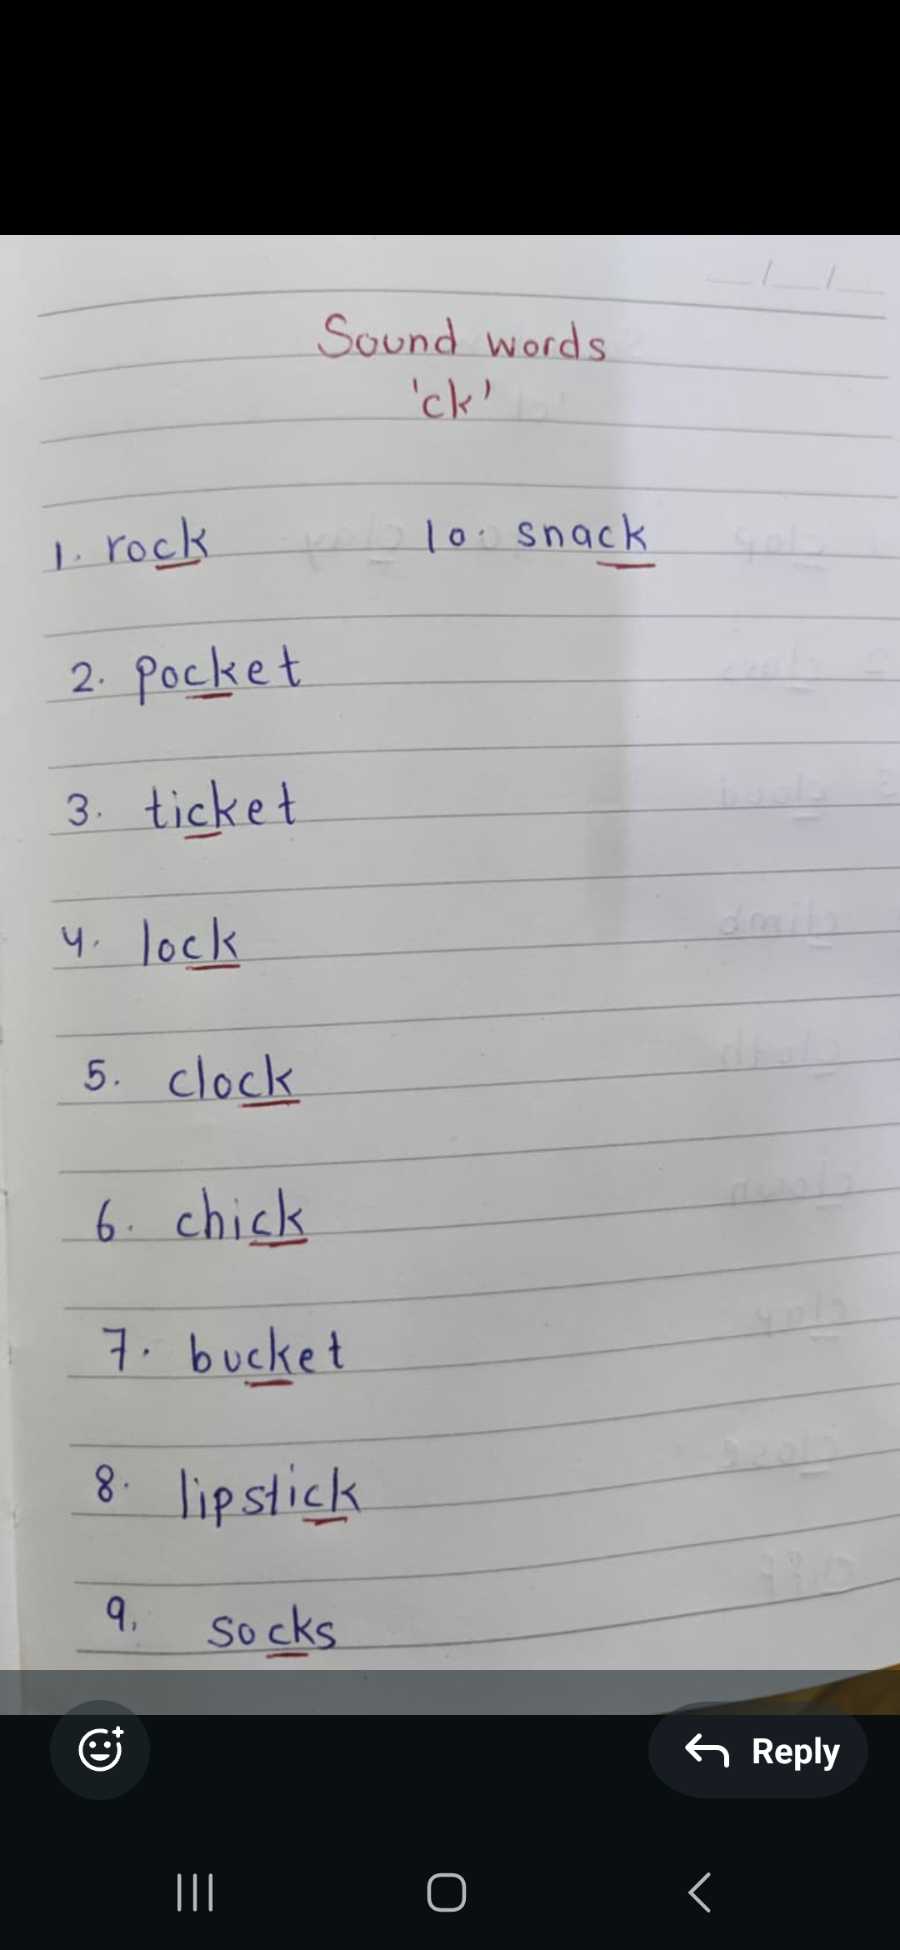 Sound words
'ck'
1. rock
10. snack
2. pocket
3. ticket
4. lock
5. clock
6. chick
7. bucket
8. lipstick
9. socks
Reply